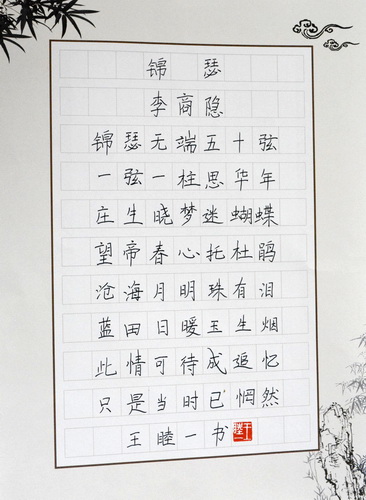 锦瑟
李商隐
锦瑟无端五十弦
一弦一柱思华年
庄生晓梦迷蝴蝶
望帝春心托杜鹃
沧海月明珠有泪
蓝田日暖玉生烟
此情可待成追忆
只是当时已惘然
王睦一书